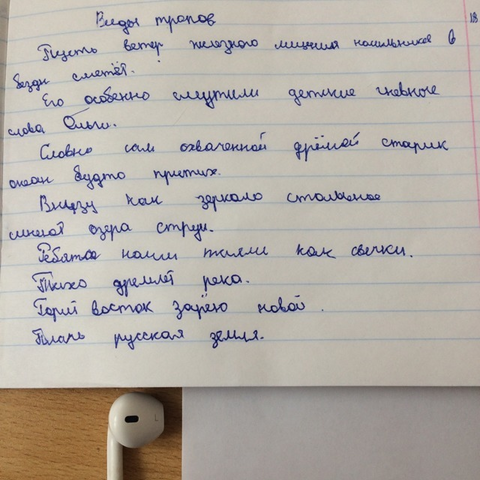 Виды тропов
18
Пусть ветер железного мщения насильников в
бездн сметёт.
Его особенно смутили детские гневные
слова Ольги.
Словно сам охваченной дрёмой старик
океан будто притих.
Внизу как зеркало стальное
синеют озера струи.
Ребята наши таяли как свечки.
Тихо дремлет река.
Горит восток зарёю новой.
Плачь русская земля.